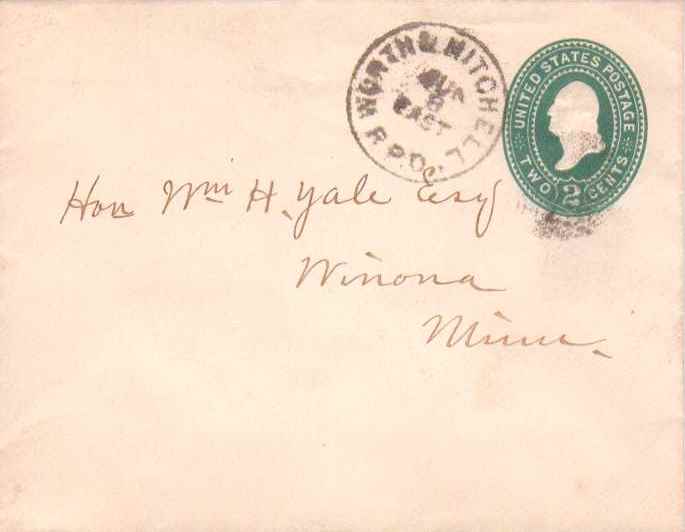 WORTH & MITCHELL
AUG
8
EAST
R.P.O.
UNITED STATES POSTAGE
TWO 2 CENTS
Hon Wm H. Yale Esq
Winona
Minn.